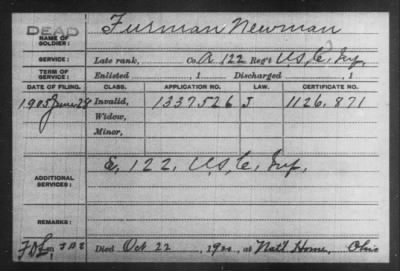 DEAD
NAME OF SOLDIER: Furman Newman
SERVICE: Late rank, Co. A 122 Reg't U.S.C. Inf.
TERM OF SERVICE: Enlisted , 1 Discharged , 1
DATE OF FILING. CLASS. APPLICATION NO. LAW. CERTIFICATE NO.
1905 June 29 Invalid, 1337526 J 1126,871
Widow,
Minor,
ADDITIONAL SERVICES: E, 122, U.S.C. Inf.
REMARKS:
Died Oct 22 19 at Nat'l Home, Ohio